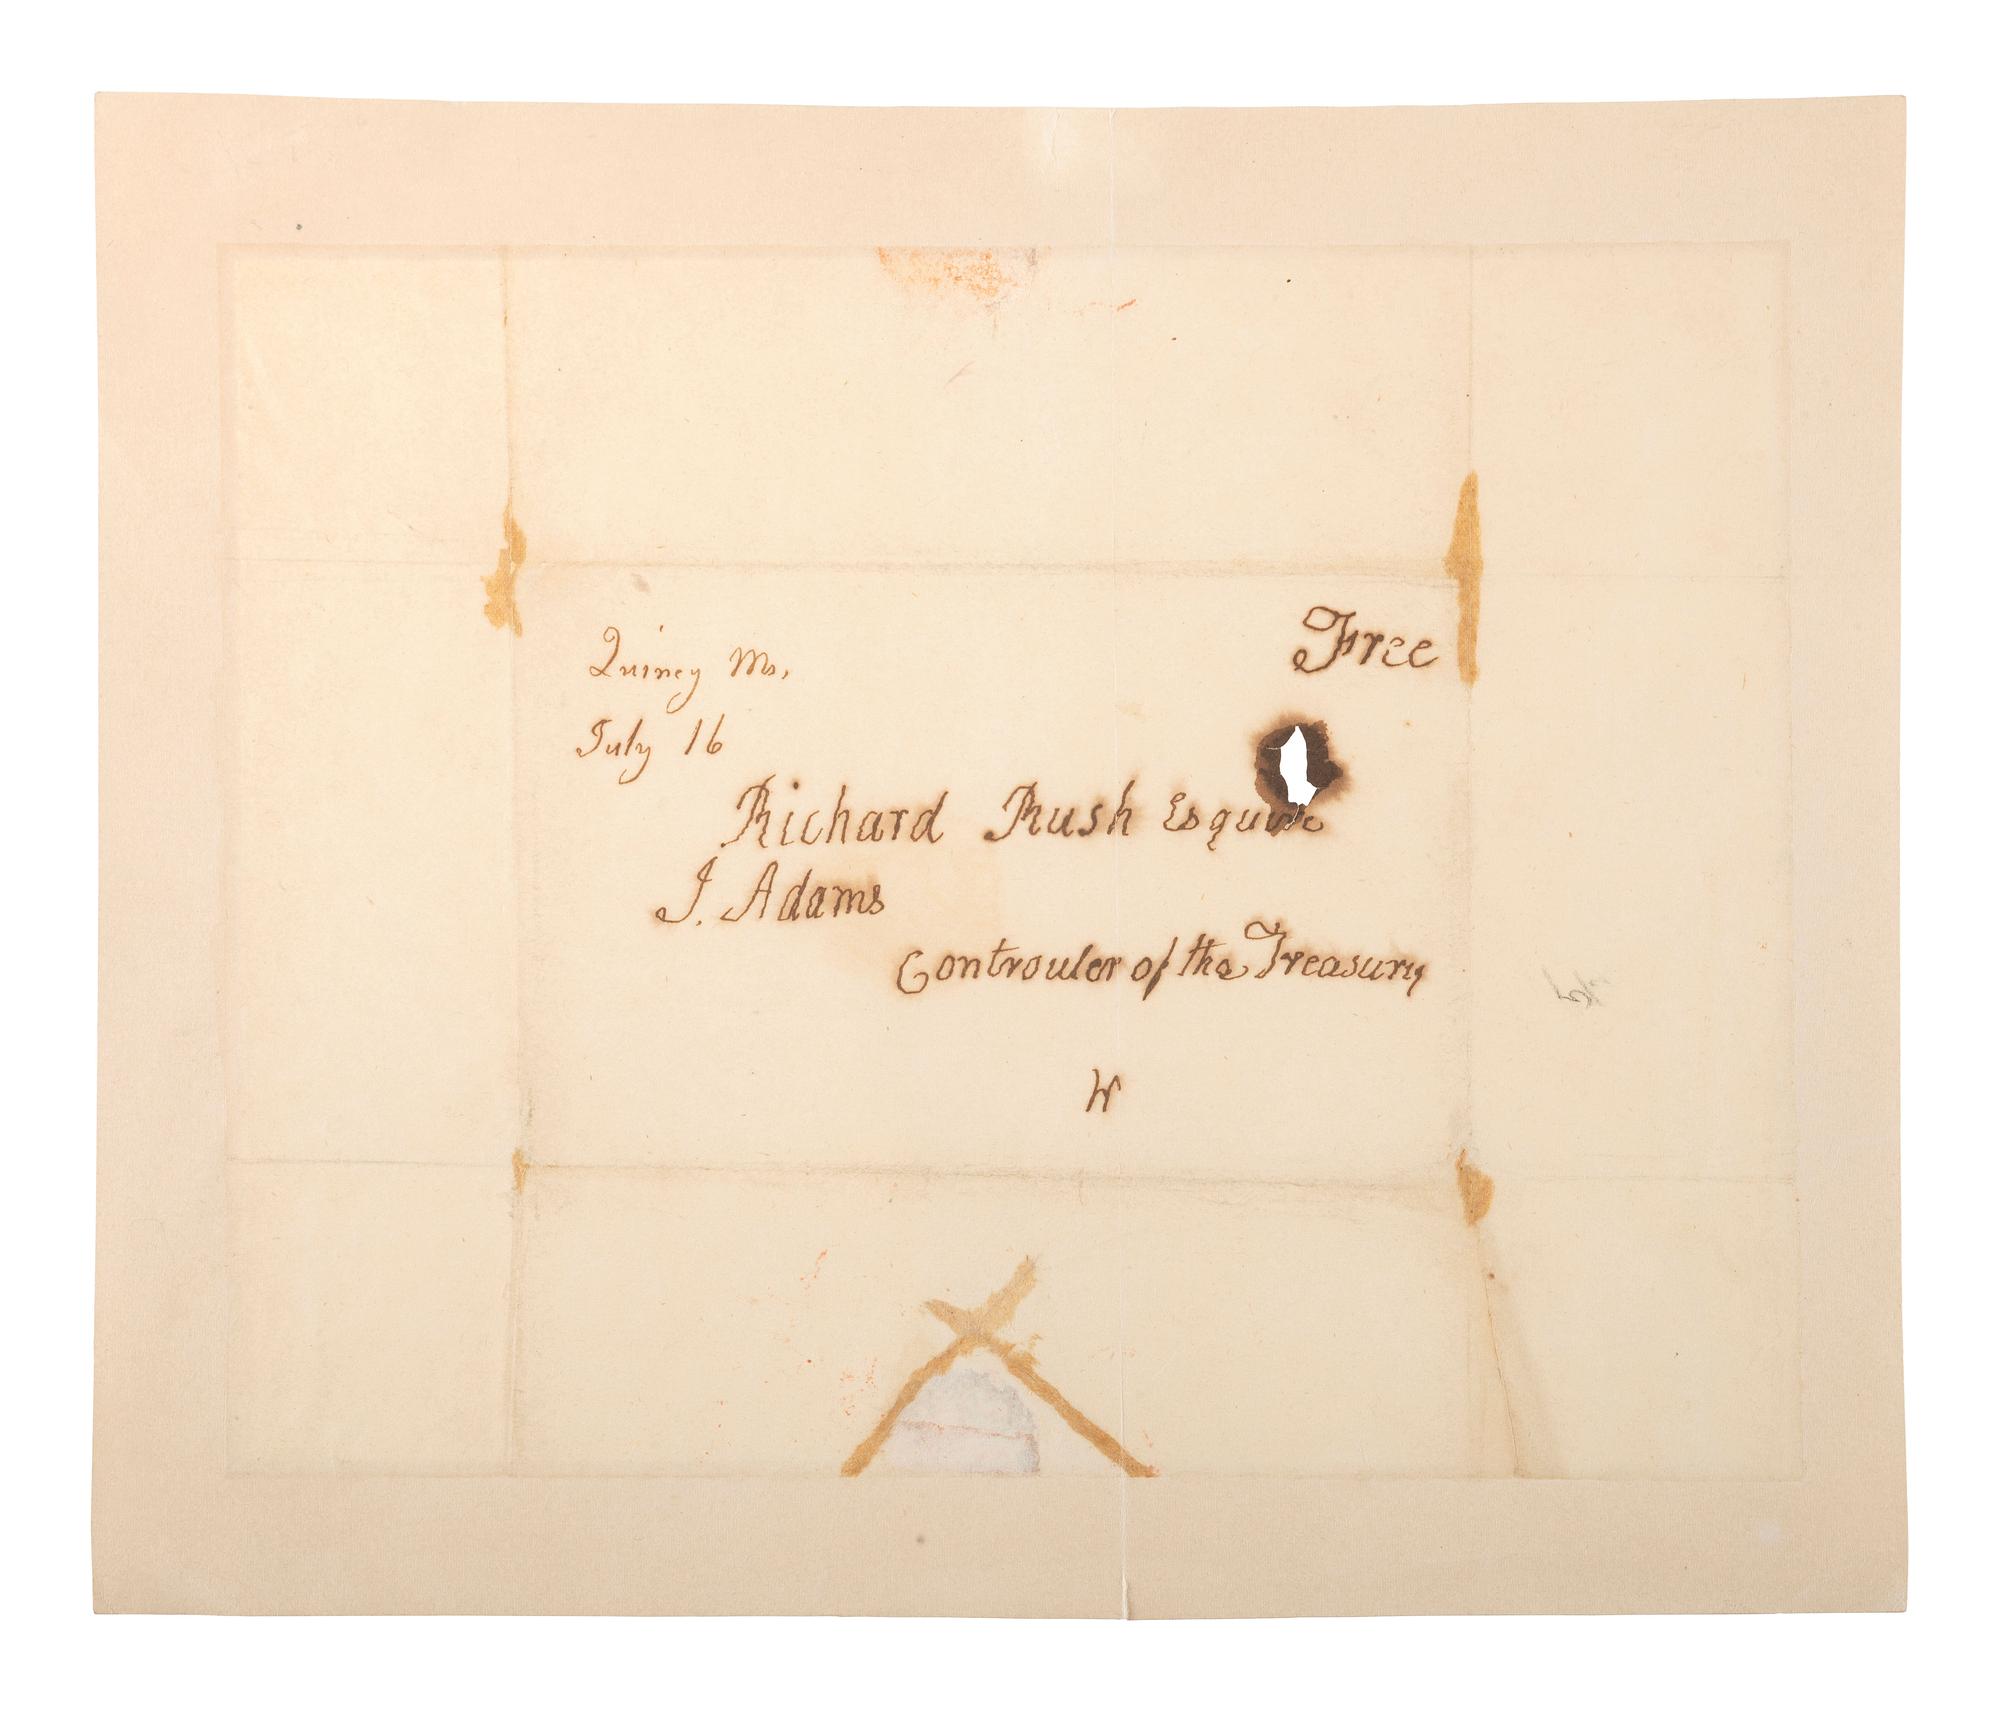 Quincy Ms,
Free
July 16
Richard Rush Esquire
J. Adams
Controuler of the Treasury
W